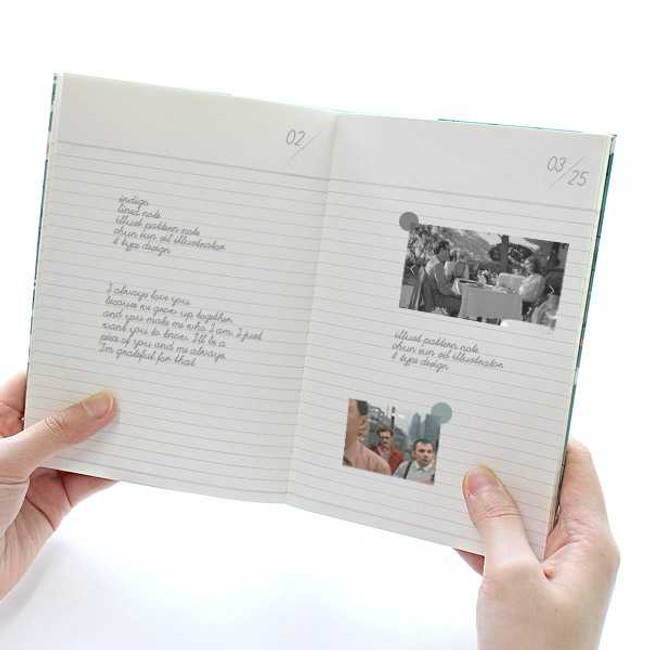 02/
indigo
lined note
illust pattern note
chun eun sil illustrator
& type design
I always love you.
because we grow up together.
and you make me who I am. I just
want you to know. I'll be a
piece of you and me always.
I'm grateful for that.
03/25
illust pattern note
chun eun sil illustrator
& type design